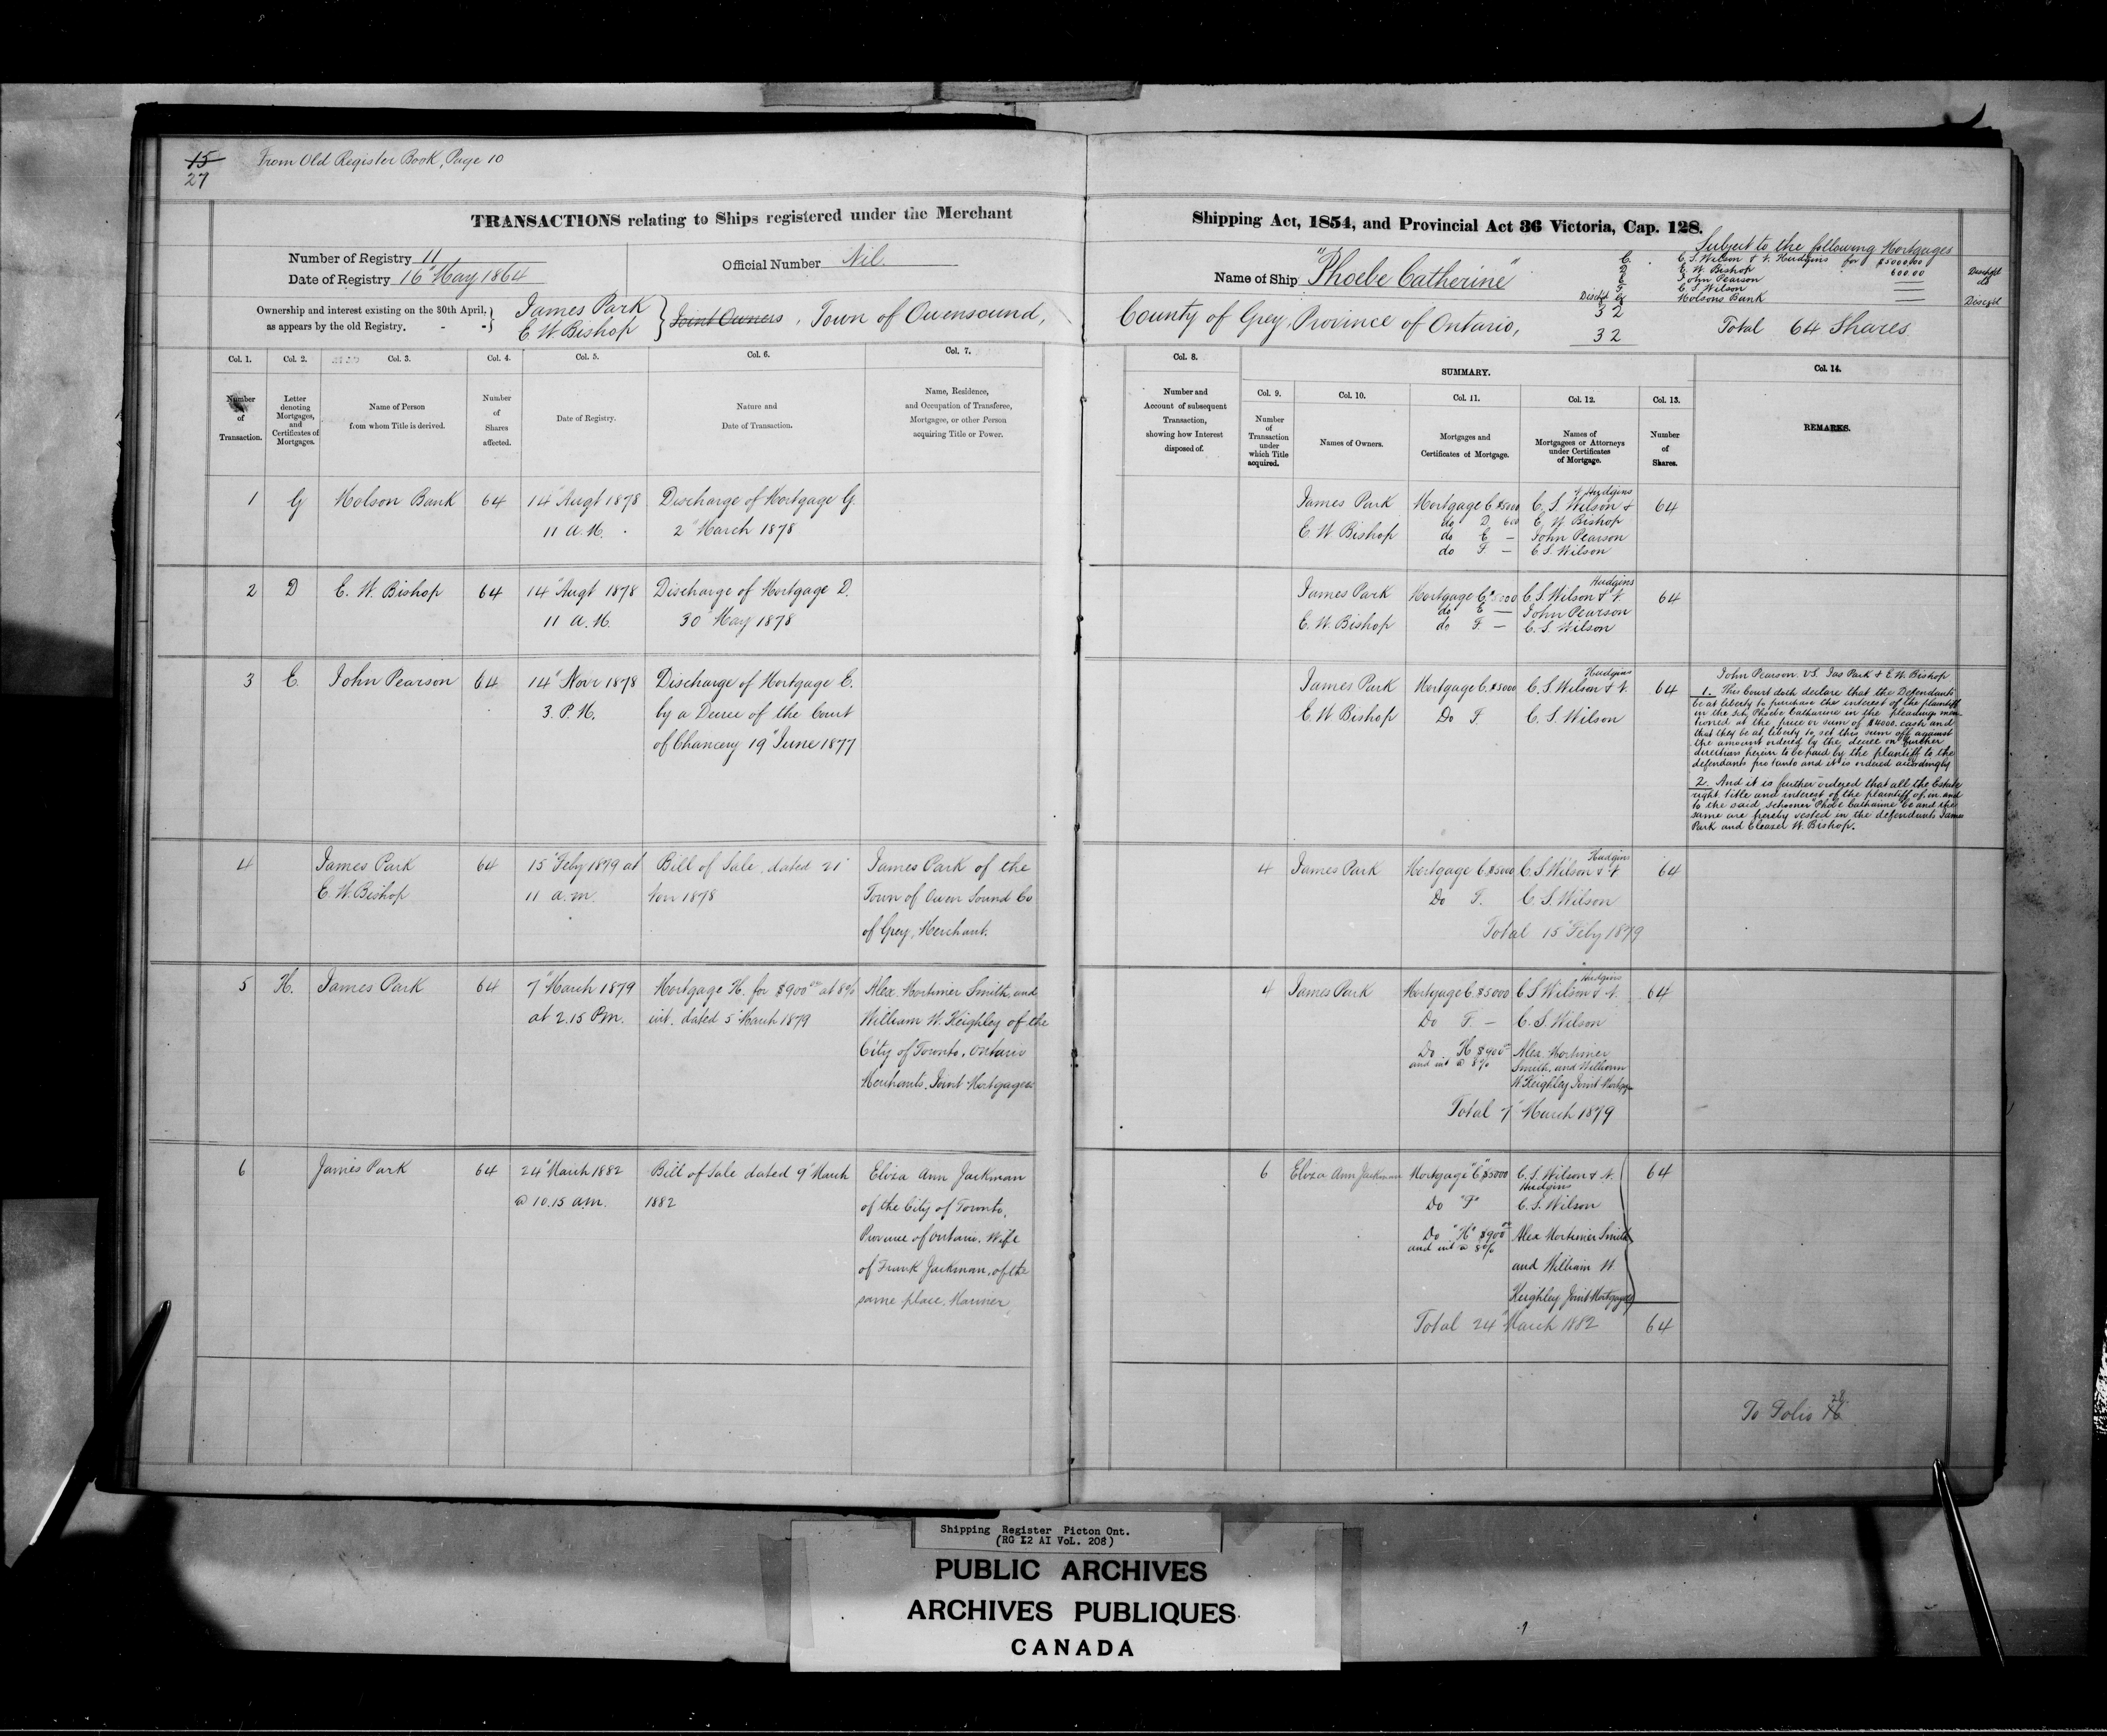 15
27
From Old Register Book, Page 10
TRANSACTIONS relating to Ships registered under the Merchant
Number of Registry 11
Date of Registry 16" May 1864
Official Number Nil.
Ownership and interest existing on the 30th April,
as appears by the old Registry.
James Park
E. W. Bishop
Joint Owners, Town of Owensound,
Col. 1.
Number
of
Transaction.
Col. 2.
Letter
denoting
Mortgages,
and
Certificates of
Mortgages.
Col. 3.
Name of Person
from whom Title is derived.
Col. 4.
Number
of
Shares
affected.
Col. 5.
Date of Registry.
Col. 6.
Nature and
Date of Transaction.
Col. 7.
Name, Residence,
and Occupation of Transferee,
Mortgagee, or other Person
acquiring Title or Power.
1 G Molson Bank 64 14" Augt 1878 Discharge of Mortgage G.
11 A.M. 2" March 1878
2 D E. W. Bishop 64 14" Augt 1878 Discharge of Mortgage D.
11 A.M. 30" May 1878
3 E. John Pearson 64 14" Novr 1878 Discharge of Mortgage E.
3. P.M. by a Decree of the Court
of Chancery 19" June 1877
4 James Park 64 15" Feby 1879 at Bill of Sale, dated 21" James Park of the
E. W. Bishop 11 a.m. Nov 1878 Town of Owen Sound Co
of Grey, Merchant.
5 H. James Park 64 7" March 1879 Mortgage H. for $900.00 at 8% Alex. Mortimer Smith, and
at 2.15 P.m. int. dated 5" March 1879 William W. Keighley of the
City of Toronto, Ontario
Merchants. Joint Mortgagees
6 James Park 64 24" March 1882 Bill of Sale dated 9" March Eliza Ann Jackman
@ 10.15 a.m. 1882 of the City of Toronto,
Province of Ontario. Wife
of Frank Jackman, of the
same place, Mariner,
Shipping Act, 1854, and Provincial Act 36 Victoria, Cap. 128.
Name of Ship "Phoebe Catherine"
County of Grey, Province of Ontario,
Subject to the following Mortgages
C. C. S. Wilson & N. Hudgins for $5000.00
D E. W. Bishop 600.00 Dischgd
E John Pearson do
F C. S. Wilson
Dischd G Molsons Bank Dischgd
32
32
Total 64 Shares
Col. 8.
Number and
Account of subsequent
Transaction,
showing how Interest
disposed of.
SUMMARY.
Col. 9.
Number
of
Transaction
under
which Title
acquired.
Col. 10.
Names of Owners.
Col. 11.
Mortgages and
Certificates of Mortgage.
Col. 12.
Names of
Mortgagees or Attorneys
under Certificates
of Mortgage.
Col. 13.
Number
of
Shares.
Col. 14.
REMARKS.
Hudgins
James Park Mortgage C $5000 C. S. Wilson & 64
do D. 600 E. W. Bishop
E. W. Bishop do E — John Pearson
do F. — C S. Wilson
Hudgins
James Park Mortgage C. $5000 C. S. Wilson & N. 64
do E — John Pearson
E. W. Bishop do F. — C. S. Wilson
Hudgins
James Park Mortgage C. $5000 C. S. Wilson & N. 64
E. W. Bishop Do F. C. S. Wilson
John Pearson. VS. Jas Park & E. W. Bishop
1. This Court doth declare that the Defendants
be at liberty to purchase the interest of the plaintiff
in the Sch. Phoebe Catharine in the pleadings men-
tioned at the price or sum of $4000. cash and
that they be at liberty to set this sum off against
the amount ordered by the decree on further
direction herein to be paid by the plantiff to the
defendants pro tanto and it is ordered accordingly
2. And it is further ordered that all the Estate
right title and interest of the plaintiff of, in and
to the said Schooner Phobe Catharine be and the
same are hereby vested in the defendants James
Park and Eleazer W. Bishop.
Hudgins
4 James Park Mortgage C. $5000 C. S. Wilson & N 64
Do F. C. S. Wilson
Total 15" Feby 1879
Hudgins
4 James Park Mortgage C. $5000 C S Wilson & N. 64
Do F. — C. S. Wilson
Do H $900.00 Alex. Mortimer
and int @ 8% Smith, and William
W. Keighley Joint Mortgagees
Total 7" March 1879
6 Eliza Ann Jackman Mortgage "C" $5000 C. S. Wilson & N. 64
Hudgins
Do "F" C. S. Wilson
Do "H" $900.00 Alex Mortimer Smith
and int @ 8%
and William W.
Keighley Joint Mortgagees
Total 24" March 1882 64
28
To Folio 16
Shipping Register Picton Ont.
(RG 12 AI VoL. 208)
PUBLIC ARCHIVES
ARCHIVES PUBLIQUES
CANADA